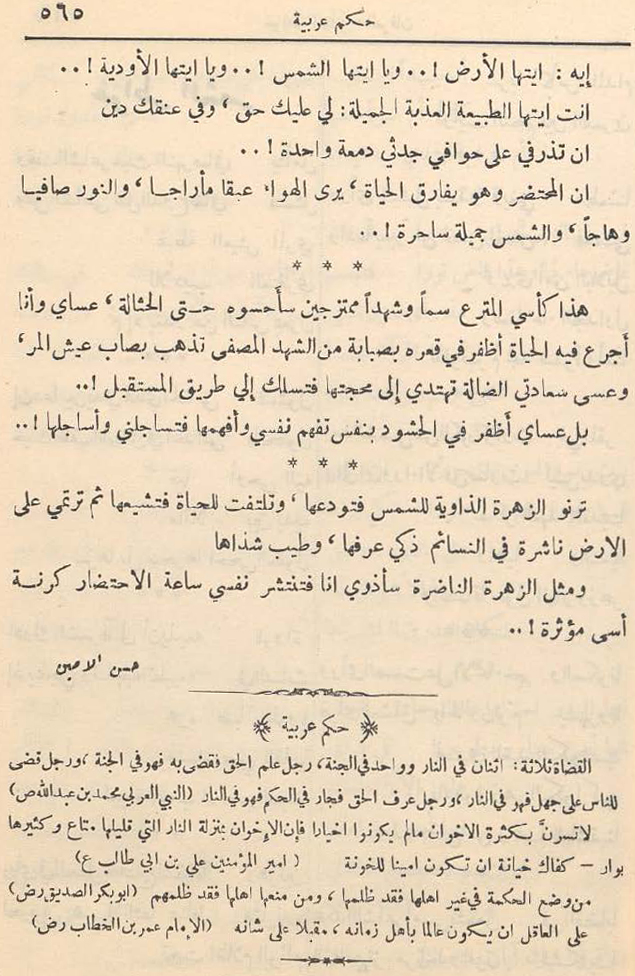 حكم عربية ٥٦٥
إيه : ايتها الأرض !.. ويا ايتها الشمس !.. ويا ايتها الأودية !..
انت ايتها الطبيعة العذبة الجميلة: لي عليك حق ، وفي عنقك دين
ان تذرفي على حوافي جدثي دمعة واحدة !..
ان المحتضر وهو يفارق الحياة ، يرى الهواء عبقا مأراجا ، والنور صافيا
وهاجاً ، والشمس جميلة ساحرة !..
* * *
هذا كأسي المترع سماً وشهداً ممتزجين سأحسوه حتى الحثالة ، عساي وأنا
أجرع فيه الحياة اظفر في قعره بصبابة من الشهد المصفى تذهب بصاب عيش المر ،
وعسى سعادتي الضالة تهتدي إلى محجتها فتسلك إلي طريق المستقبل !..
بل عساي أظفر في الحشود بنفس تفهم نفسي وأفهمها فتساجلني وأساجلها !..
* * *
ترنو الزهرة الذاوية للشمس فتودعها ، وتلتفت للحياة فتشيعها ثم ترتمي على
الارض ناشرة في النسائم ذكي عرفها ، وطيب شذاها
ومثل الزهرة الناضرة سأذوي انا فتنتشر نفسي ساعة الاحتضار كرنة
أسى مؤثرة !..
حسن الامين
حكم عربية
القضاة ثلاثة : اثنان في النار وواحد في الجنة ، رجل علم الحق فقضى به فهو في الجنة ، ورجل قضى
للناس على جهل فهو في النار ، ورجل عرف الحق فجار في الحكم فهو في النار (النبي العربي محمد بن عبدالله ص)
لاتسرنَّ بكثرة الاخوان مالم يكونوا اخيارا فإن الإخوان بمنزلة النار التي قليلها متاع وكثيرها
بوار – كفاك خيانة ان تكون امينا للخونة ( امير المؤمنين علي بن ابي طالب ع )
من وضع الحكمة في غير اهلها فقد ظلمها ، ومن منعها اهلها فقد ظلمهم (ابوبكر الصديق رض)
على العاقل ان يكون عالما بأهل زمانه ، مقبلا على شانه (الإمام عمر بن الخطاب رض)